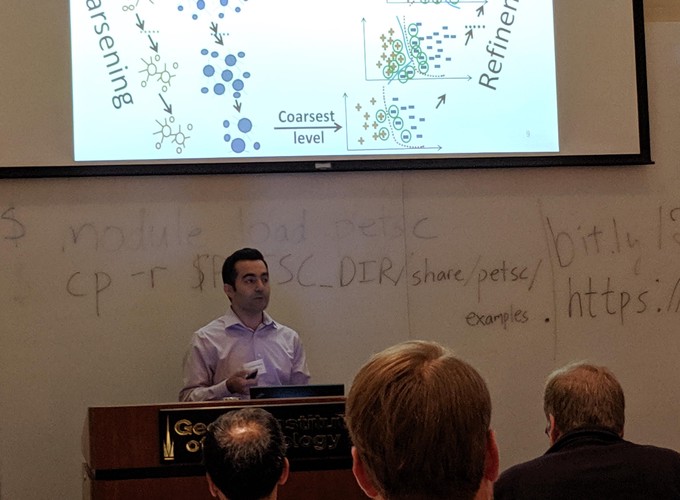 arsening
Refinem
Coarsest
level
$ module load petsc
cp -r $P SC_DIR/share/petsc/
examples .
bit.ly/
https:/
Ge nstitu
of ology